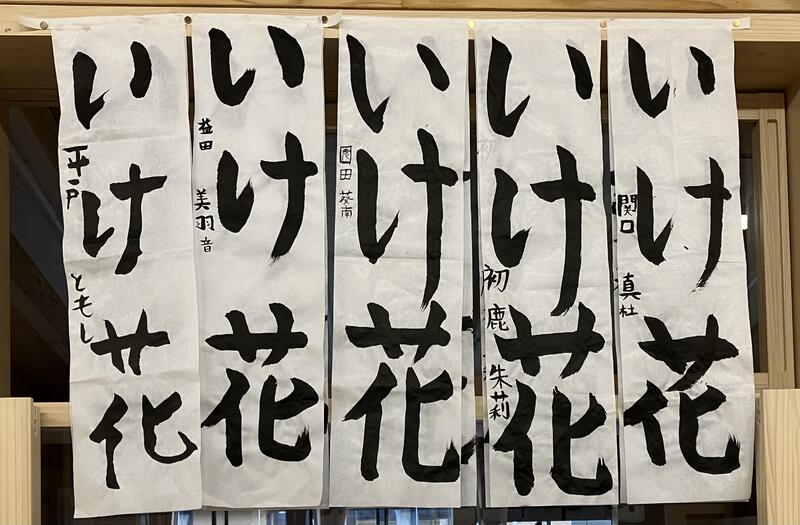 いけ花
関口 真杜
いけ花
初鹿 朱莉
いけ花
園田 葵南
いけ花
益田 美羽音
いけ花
平戸 ともし